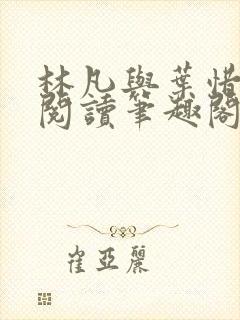 林凡與葉惜
閱讀筆趣閣
崔亞麗